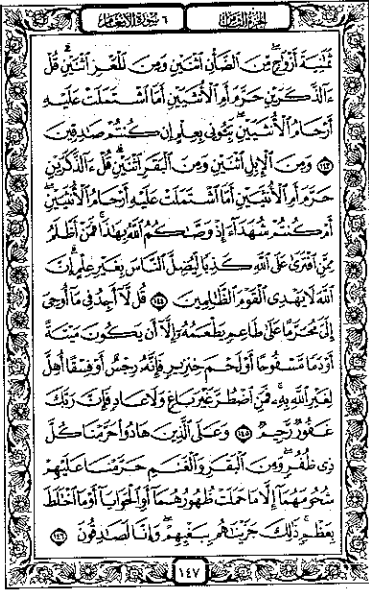 الجزء الثامن
٦ سورة الأنعام
ثَمَٰنِيَةَ أَزْوَٰجٍ ۖ مِّنَ ٱلضَّأْنِ ٱثْنَيْنِ وَمِنَ ٱلْمَعْزِ ٱثْنَيْنِ ۗ قُلْ
ءَآلذَّكَرَيْنِ حَرَّمَ أَمِ ٱلْأُنثَيَيْنِ أَمَّا ٱشْتَمَلَتْ عَلَيْهِ
أَرْحَامُ ٱلْأُنثَيَيْنِ ۖ نَبِّـُٔونِى بِعِلْمٍ إِن كُنتُمْ صَٰدِقِينَ
١٤٣ وَمِنَ ٱلْإِبِلِ ٱثْنَيْنِ وَمِنَ ٱلْبَقَرِ ٱثْنَيْنِ ۗ قُلْ ءَآلذَّكَرَيْنِ
حَرَّمَ أَمِ ٱلْأُنثَيَيْنِ أَمَّا ٱشْتَمَلَتْ عَلَيْهِ أَرْحَامُ ٱلْأُنثَيَيْنِ ۖ
أَمْ كُنتُمْ شُهَدَآءَ إِذْ وَصَّىٰكُمُ ٱللَّهُ بِهَٰذَا ۚ فَمَنْ أَظْلَمُ
مِمَّنِ ٱفْتَرَىٰ عَلَى ٱللَّهِ كَذِبًا لِّيُضِلَّ ٱلنَّاسَ بِغَيْرِ عِلْمٍ ۗ إِنَّ
ٱللَّهَ لَا يَهْدِى ٱلْقَوْمَ ٱلظَّٰلِمِينَ ١٤٤ قُل لَّآ أَجِدُ فِى مَآ أُوحِىَ
إِلَىَّ مُحَرَّمًا عَلَىٰ طَاعِمٍ يَطْعَمُهُۥٓ إِلَّآ أَن يَكُونَ مَيْتَةً
أَوْ دَمًا مَّسْفُوحًا أَوْ لَحْمَ خِنزِيرٍ فَإِنَّهُۥ رِجْسٌ أَوْ فِسْقًا أُهِلَّ
لِغَيْرِ ٱللَّهِ بِهِۦ ۚ فَمَنِ ٱضْطُرَّ غَيْرَ بَاغٍ وَلَا عَادٍ فَإِنَّ رَبَّكَ
غَفُورٌ رَّحِيمٌ ١٤٥ وَعَلَى ٱلَّذِينَ هَادُوا۟ حَرَّمْنَا كُلَّ
ذِى ظُفُرٍ ۖ وَمِنَ ٱلْبَقَرِ وَٱلْغَنَمِ حَرَّمْنَا عَلَيْهِمْ
شُحُومَهُمَآ إِلَّا مَا حَمَلَتْ ظُهُورُهُمَآ أَوِ ٱلْحَوَايَآ أَوْ مَا ٱخْتَلَطَ
بِعَظْمٍ ۚ ذَٰلِكَ جَزَيْنَٰهُم بِبَغْيِهِمْ ۖ وَإِنَّا لَصَٰدِقُونَ ١٤٦
١٤٧